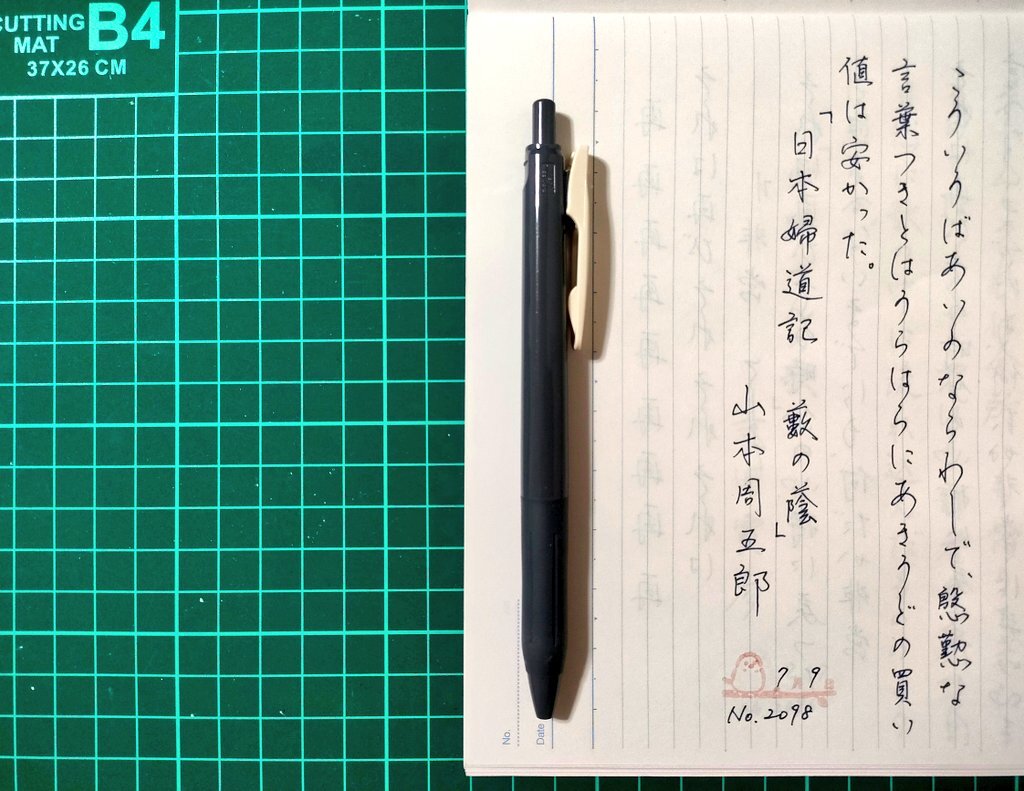 CUTTING
MAT B4
37X26 CM
こういうばあいのならわしで、慇懃な
言葉つきとはうらはらにあきうどの買い
値は安かった。
「日本婦道記 藪の蔭」
山本周五郎
7 9
No. 2098
No.
Date